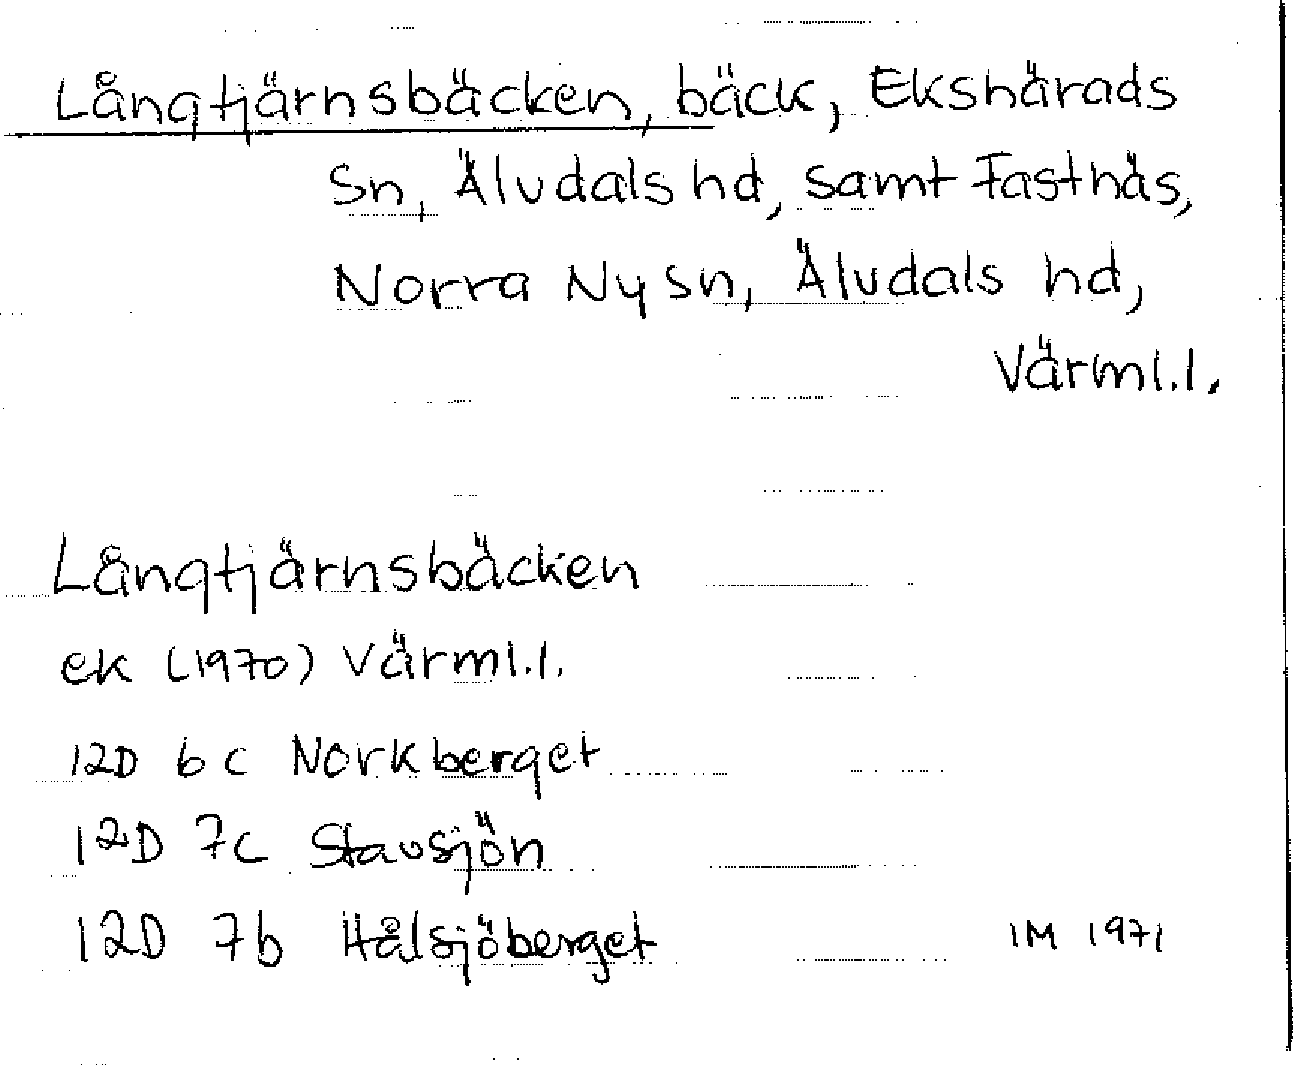 Långtjärnsbäcken, bäck, Ekshärads
Sn, Älvdals hd, samt Fastnäs,
Norra Ny Sn, Älvdals hd,
Värml.l.
Långtjärnsbäcken
ek (1970) Värml.l.
12D 6c Norkberget
12D 7c Stavsjön
12D 7b Hålsjöberget
IM 1971